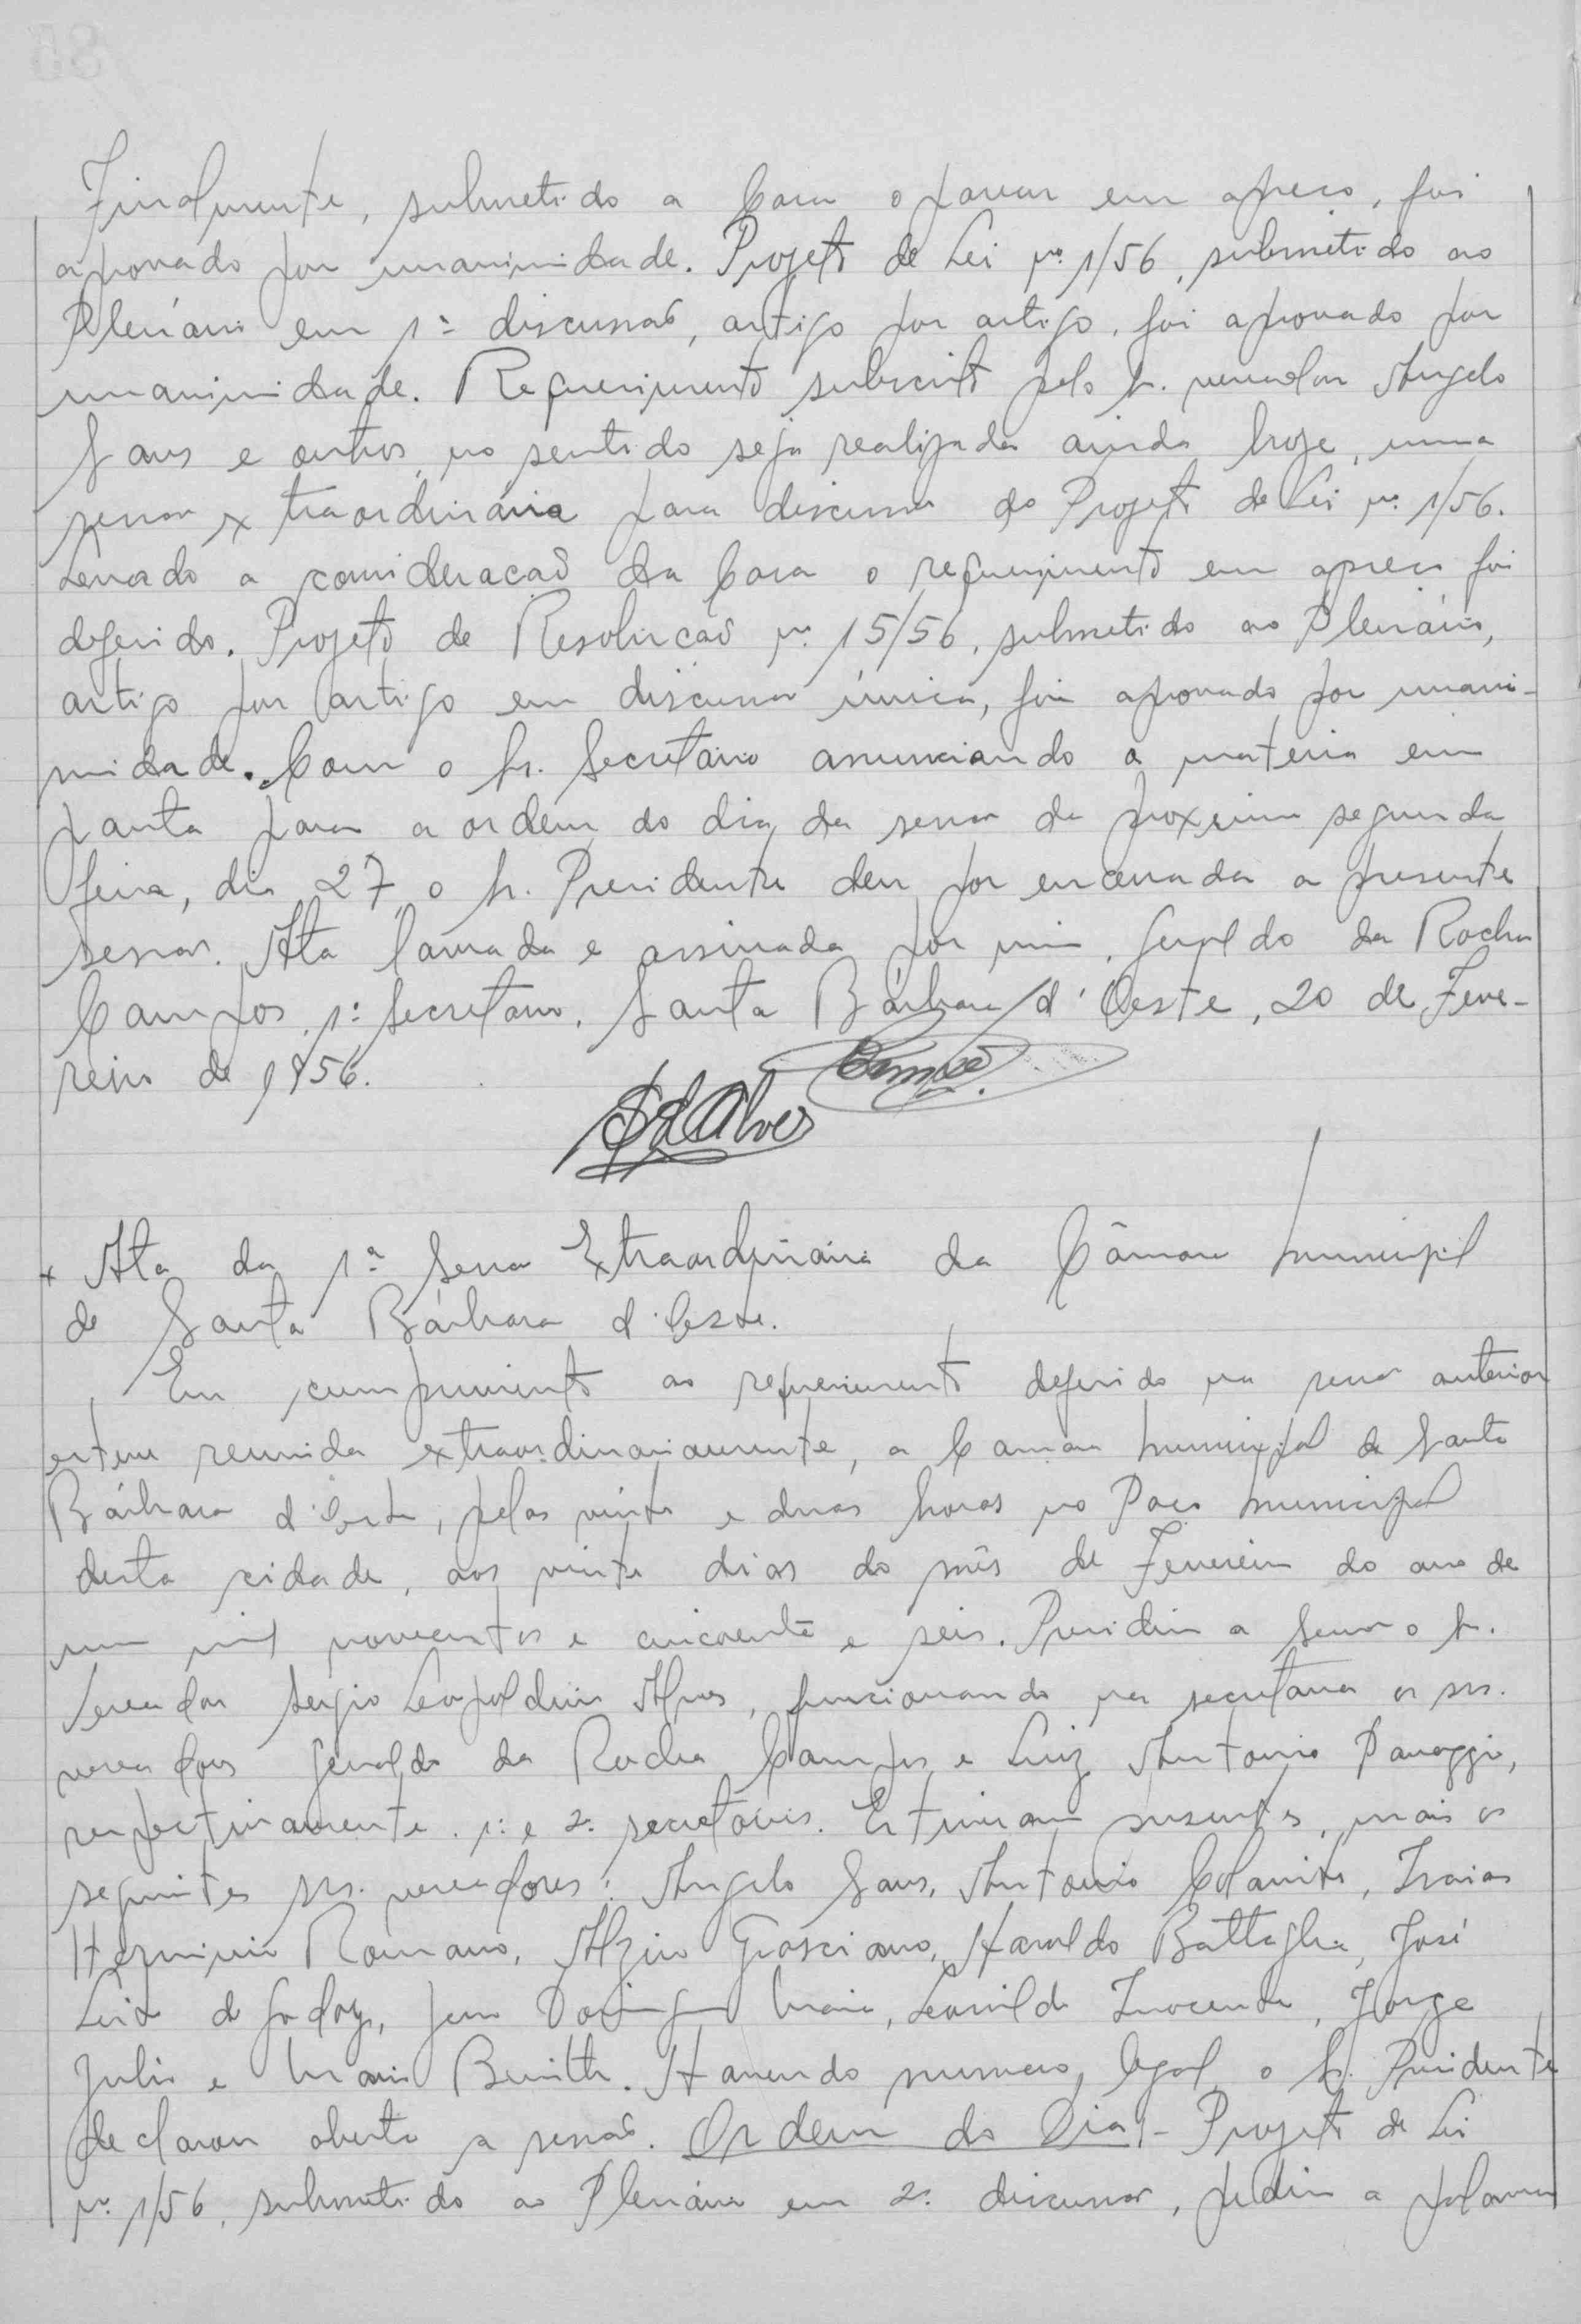 Finalmente, submetido a Casa o parecer em apreço, foi
aprovado por unanimidade. Projeto de Lei nº 1/56, submetido ao
Plenário em 1ª discussão, artigo por artigo, foi aprovado por
unanimidade. Requerimento subscrito pelo Sr. vereador Angelo
Sans e outros, no sentido seja realizada ainda hoje, uma
sessão extraordinária para discussão do Projeto de Lei nº 1/56.
Levado a consideração da Casa o requerimento em apreço foi
deferido. Projeto de Resolução nº 15/56, submetido ao Plenário,
artigo por artigo em discussão única, foi aprovado por unani-
midade. Com o Sr. Secretário anunciando a matéria em
pauta para a ordem do dia da sessão da próxima segunda
feira, dia 27, o Sr. Presidente deu por encerrada a presente
sessão. Ata lavrada e assinada por mim, Geraldo da Rocha
Campos, 1º Secretário. Santa Bárbara d'Oeste, 20 de Feve-
reiro de 1956.
SLAlves
x Ata da 1ª Sessão Extraordinária da Câmara Municipal
de Santa Bárbara d'Oeste.
Em cumprimento ao requerimento deferido na sessão anterior
esteve reunida extraordinariamente, a Camara Municipal de Santa
Bárbara d'Oeste, pelas vinte e duas horas no Paço Municipal
desta cidade, aos vinte dias do mês de Fevereiro do ano de
um mil novecentos e cincoenta e seis. Presidiu a Sessão o Sr.
Vereador Sergio Leopoldino Alves, funcionando na secretaria os srs.
vereadores Geraldo da Rocha Campos e Luiz Antonio Panaggio,
respectivamente 1º e 2º secretários. Estiveram presentes, mais os
seguintes srs. vereadores: Angelo Sans, Antonio Romano, Isaias
Herminio Romano, Alziro Grasciano, Haroldo Battaglia, José
Leite de Godoy, Domingos Maia, Leonildo Inocencio, Jorge
Julio e Benith. Havendo numero legal, o Sr. Presidente
declarou aberta a sessão. Ordem do Dia - Projeto de Lei
nº 1/56, submetido ao Plenário em 2ª discussão, pediu a palavra